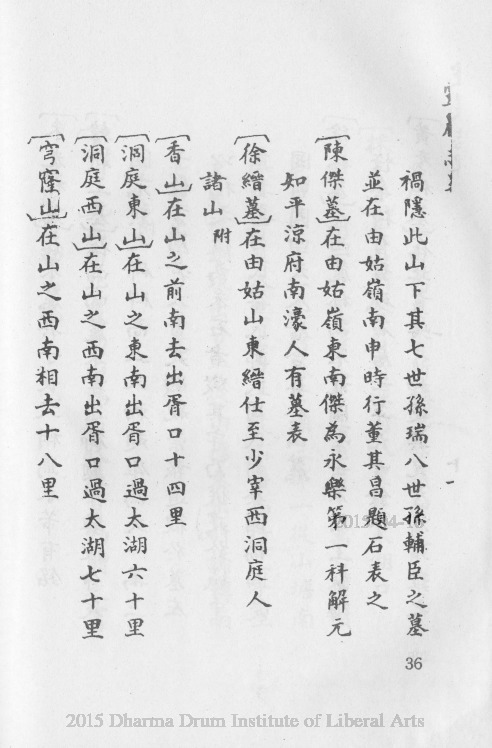 禍隱此山下其七世孫瑞八世孫輔臣之墓
並在由姑嶺南申時行董其昌題石表之
〔陳傑墓〕在由姑嶺東南傑為永樂第一科解元
知平涼府南濠人有墓表
〔徐縉墓〕在由姑山東縉仕至少宰西洞庭人
諸山附
〔香山〕在山之前南去出胥口十四里
〔洞庭東山〕在山之東南出胥口過太湖六十里
〔洞庭西山〕在山之西南出胥口過太湖七十里
〔穹窿山〕在山之西南相去十八里
36
2015 Dharma Drum Institute of Liberal Arts